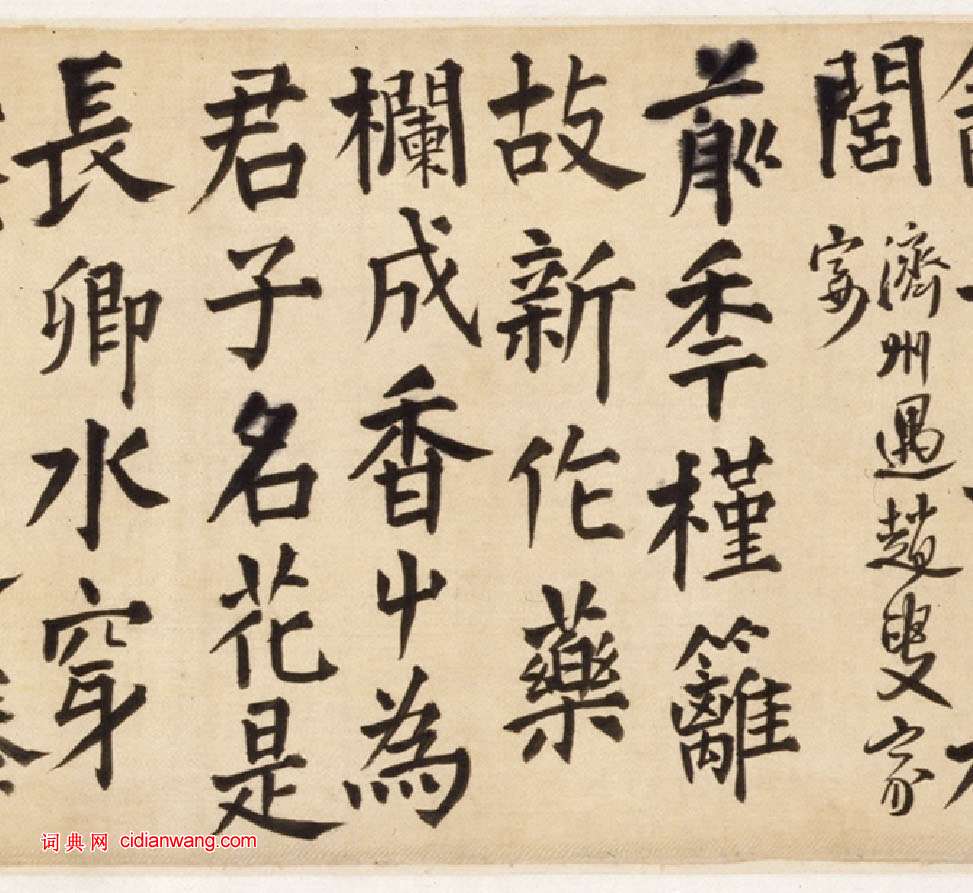 閭
濟州過趙叟家
宴
前秊槿籬
故新作藥
欄成香屮為
君子名花是
長卿水穿
词典网 cidianwang.com